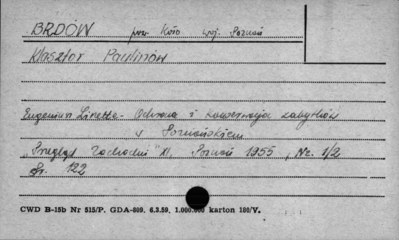 BRDÓW pow. Koło woj. Poznań
Klasztor Paulinów
Eugeniusz Linette - Ochrona i konserwacja zabytków
w Poznańskiem
"Przegląd Zachodni" XI, Poznań 1955, Nr. 1/2
Str. 122
CWD B-15b Nr 515/P. GDA-809. 6.3.59. 1.000.000 karton 180/V.